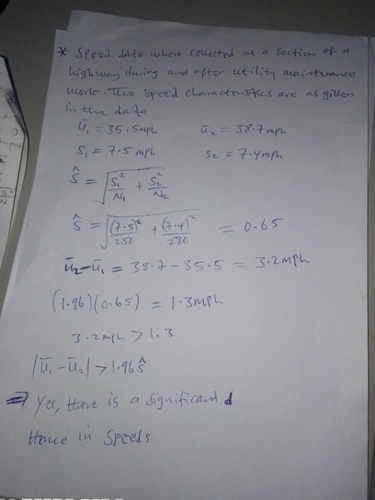 * Speed data where collected at a section of a
highway during and after utility maintenance
work. The speed characteristics are as given
in the data
ū₁ = 35.5mph    ū₂ = 38.7mph
S₁ = 7.5mph    s₂ = 7.4mph
Ŝ = √(S₁²/N₁ + S₂²/N₂)
Ŝ = √((7.5)²/250 + (7.4)²/280) = 0.65
ū₂-ū₁ = 38.7-35.5 = 3.2mph
(1.96)(0.65) = 1.3mph
3.2mph > 1.3
|ū₁-ū₂| > 1.96ŝ
⇒ Yes, there is a significant d
Hence in Speeds